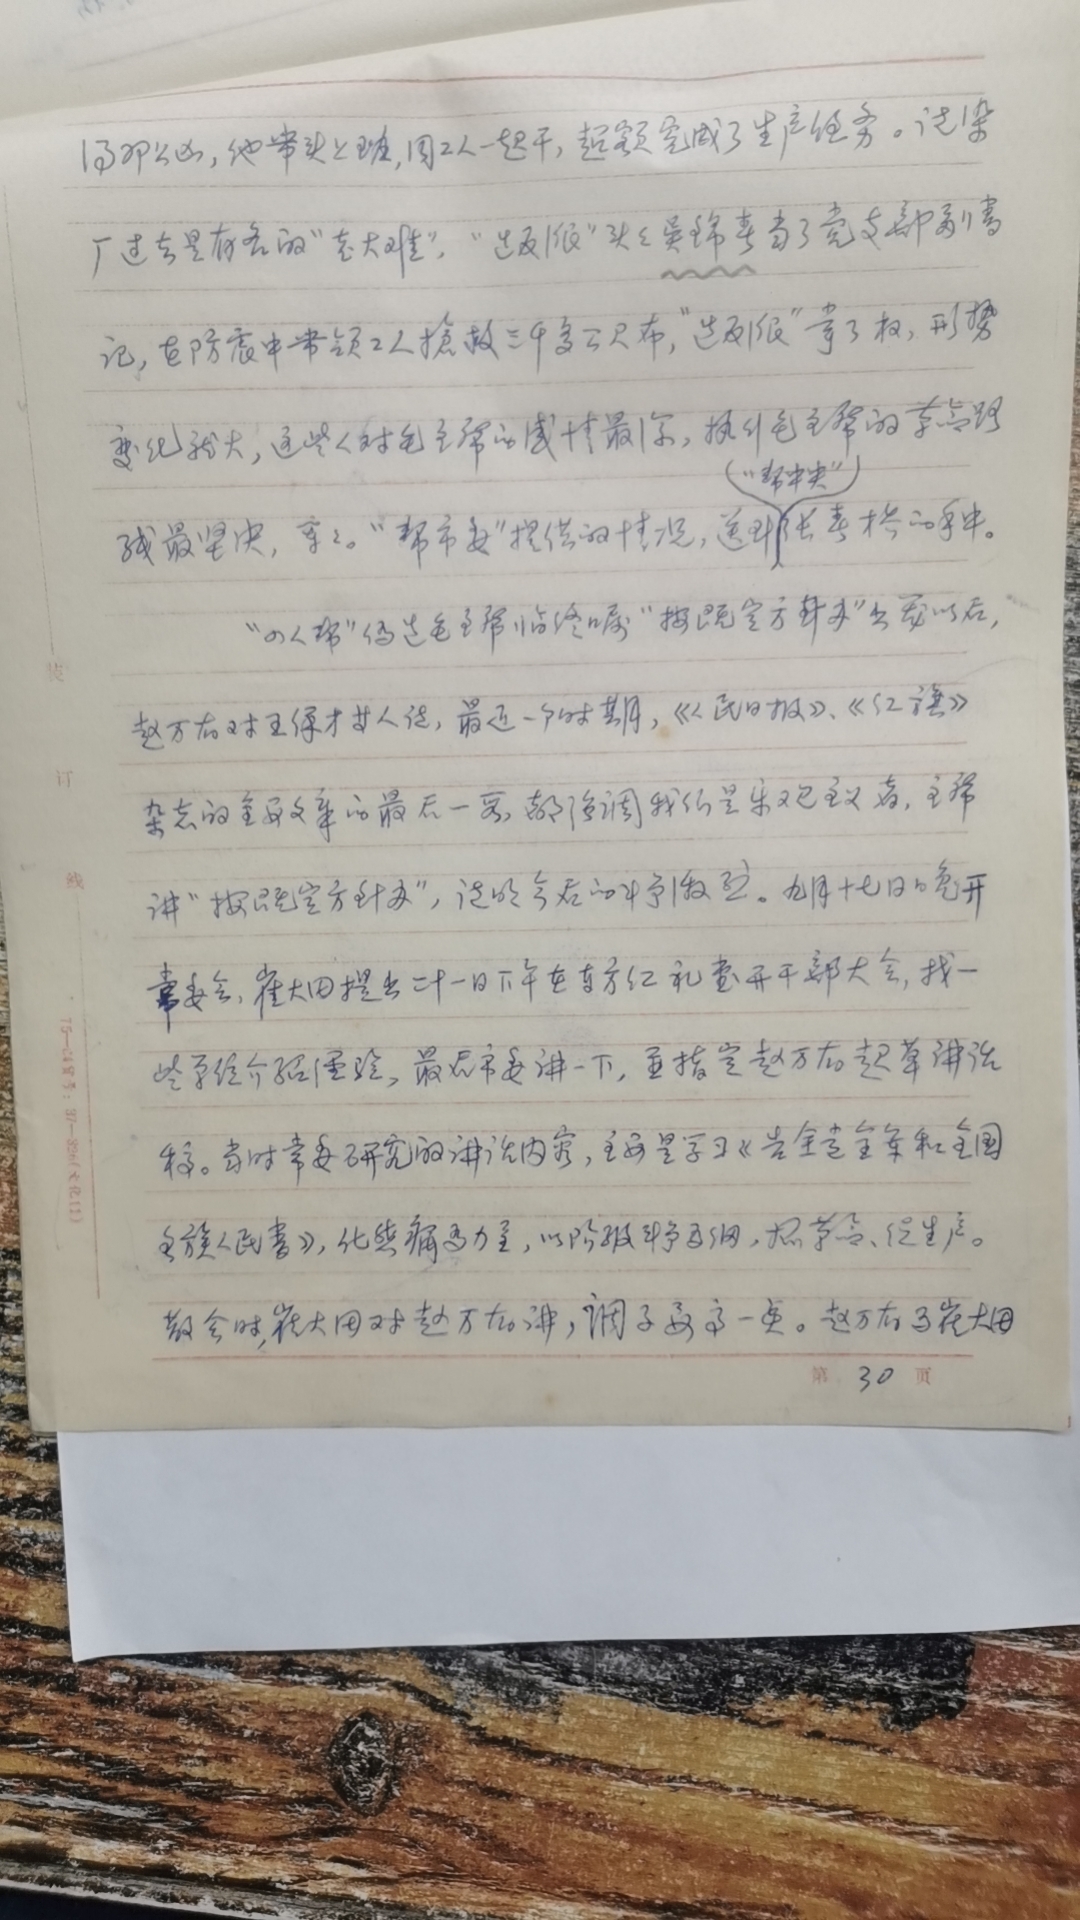 他带头上班,同工人一起干,超额完成了生产任务。说染
厂过去是有名的"老大难","造反派"头头吴锦春当了党支部副书
记,在防震中带领工人抢救三千多公尺布,"造反派"掌了权,形势
变化就大,这些人对毛主席的感情最深,执行毛主席的革命路
线最坚决,等等。"帮市委"提供的情况,送到("帮中央")张春桥的手中。
"四人帮"伪造毛主席临终嘱"按既定方针办"出笼以后,
赵万有对王保才等人说,最近一个时期,《人民日报》、《红旗》
杂志的重要文章的最后一段,都强调我们是乐观主义者,主席
讲"按既定方针办",说明今后的斗争激烈。九月十七日晚开
常委会,崔大田提出二十一日下午在东方红礼堂开干部大会,找一
些单位介绍经验,最后市委讲一下,并指定赵万有起草讲话
稿。当时常委研究的讲话内容,主要是学习《告全党全军和全国
各族人民书》,化悲痛为力量,以阶级斗争为纲,抓革命、促生产。
散会时,崔大田对赵万有讲,调子要高一点。赵万有与崔大田
第 30 页
使
订
线